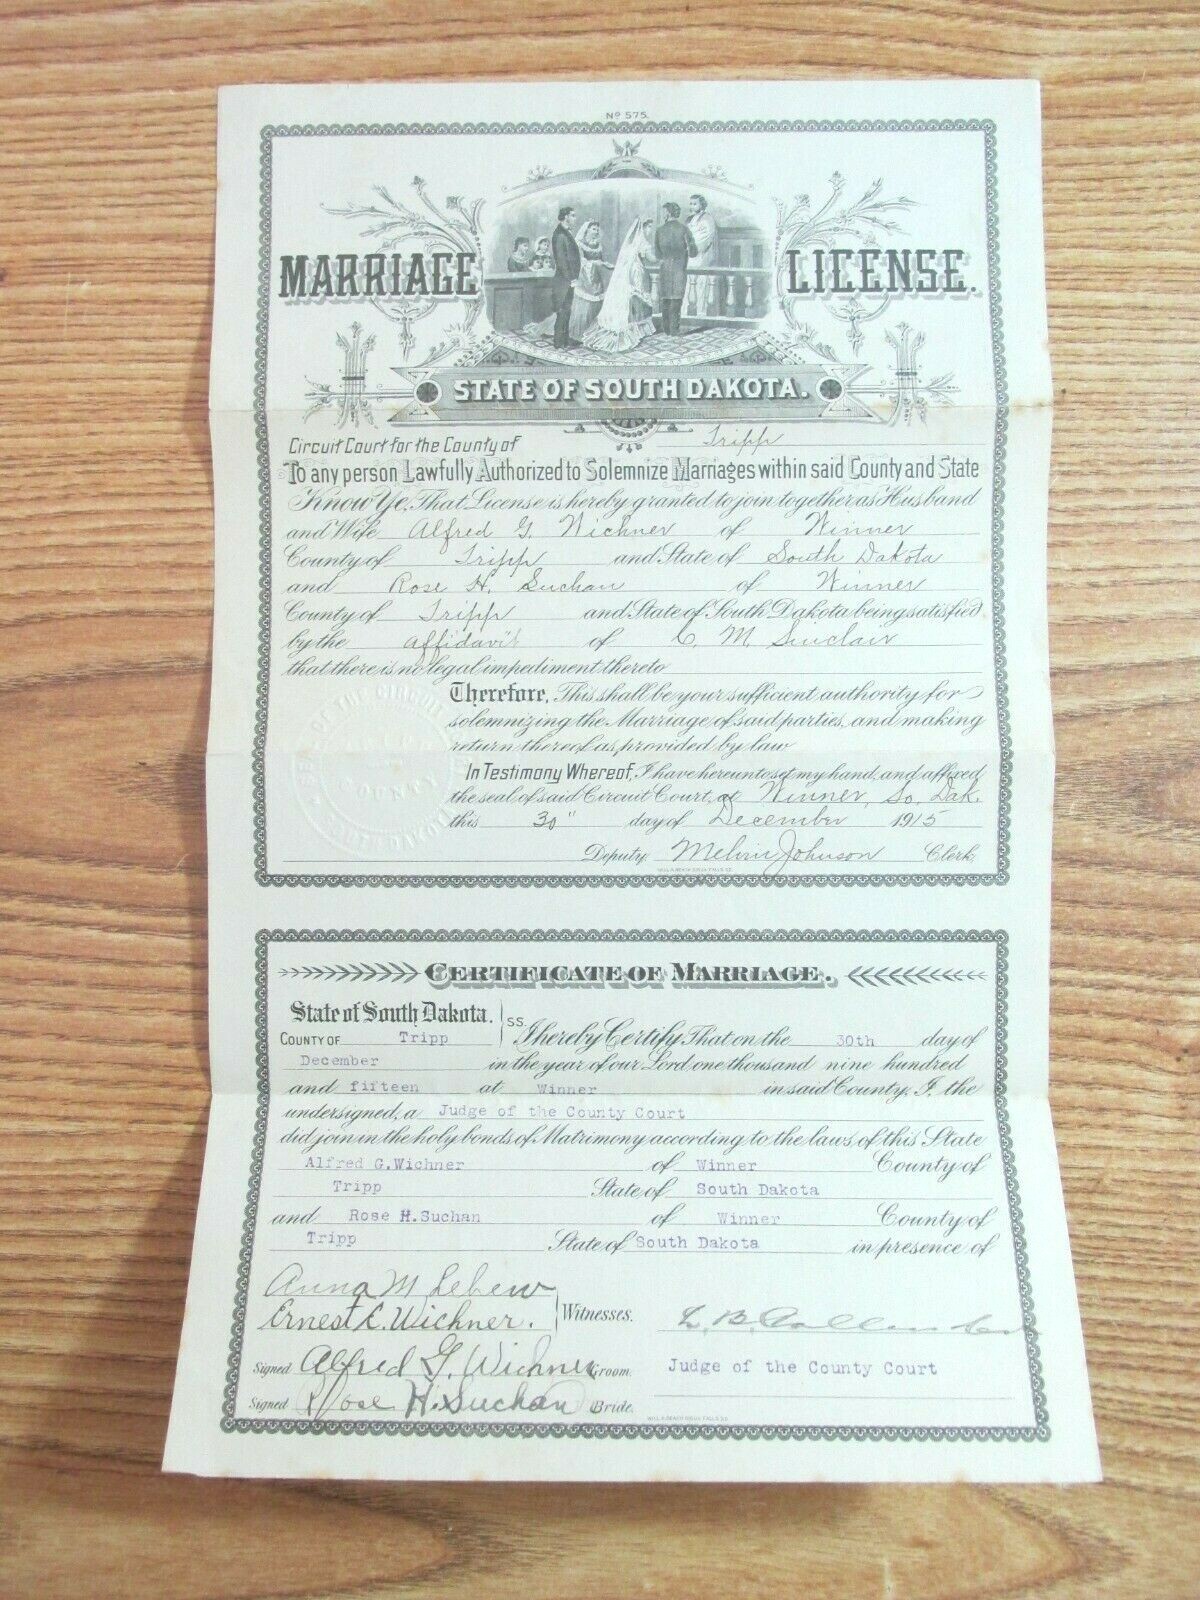 No 575.
MARRIAGE LICENSE.
STATE OF SOUTH DAKOTA.
Circuit Court for the County of Tripp
To any person Lawfully Authorized to Solemnize Marriages within said County and State
Know Ye, That License is hereby granted to join together as Husband
and Wife Alfred G. Wichner of Winner
County of Tripp and State of South Dakota
and Rose H. Suchan of Winner
County of Tripp and State of South Dakota being satisfied
by the affidavit of C. M. Sinclair
that there is no legal impediment thereto
Therefore, This shall be your sufficient authority for
solemnizing the Marriage of said parties, and making
return thereof as provided by law
In Testimony Whereof, I have hereunto set my hand, and affixed
the seal of said Circuit Court, at Winner, So. Dak.
this 30" day of December 1915
Deputy Melvin Johnson Clerk
WILL A. BEACH SIOUX FALLS SD.
SEAL OF THE CIRCUIT
COUNTY
SOUTH DAKOTA
CERTIFICATE OF MARRIAGE.
State of South Dakota.
COUNTY OF Tripp
SS. I hereby Certify That on the 30th day of
December in the year of our Lord one thousand nine hundred
and fifteen at Winner in said County, I, the
undersigned, a Judge of the County Court
did join in the holy bonds of Matrimony according to the laws of this State
Alfred G.Wichner of Winner County of
Tripp State of South Dakota
and Rose H.Suchan of Winner County of
Tripp State of South Dakota in presence of
Anna M
Ernest C. Wichner. Witnesses. L. B. Callender
Signed Alfred G. Wichner Groom. Judge of the County Court
Signed Rose H. Suchan Bride.
WILL A. BEACH SIOUX FALLS SD